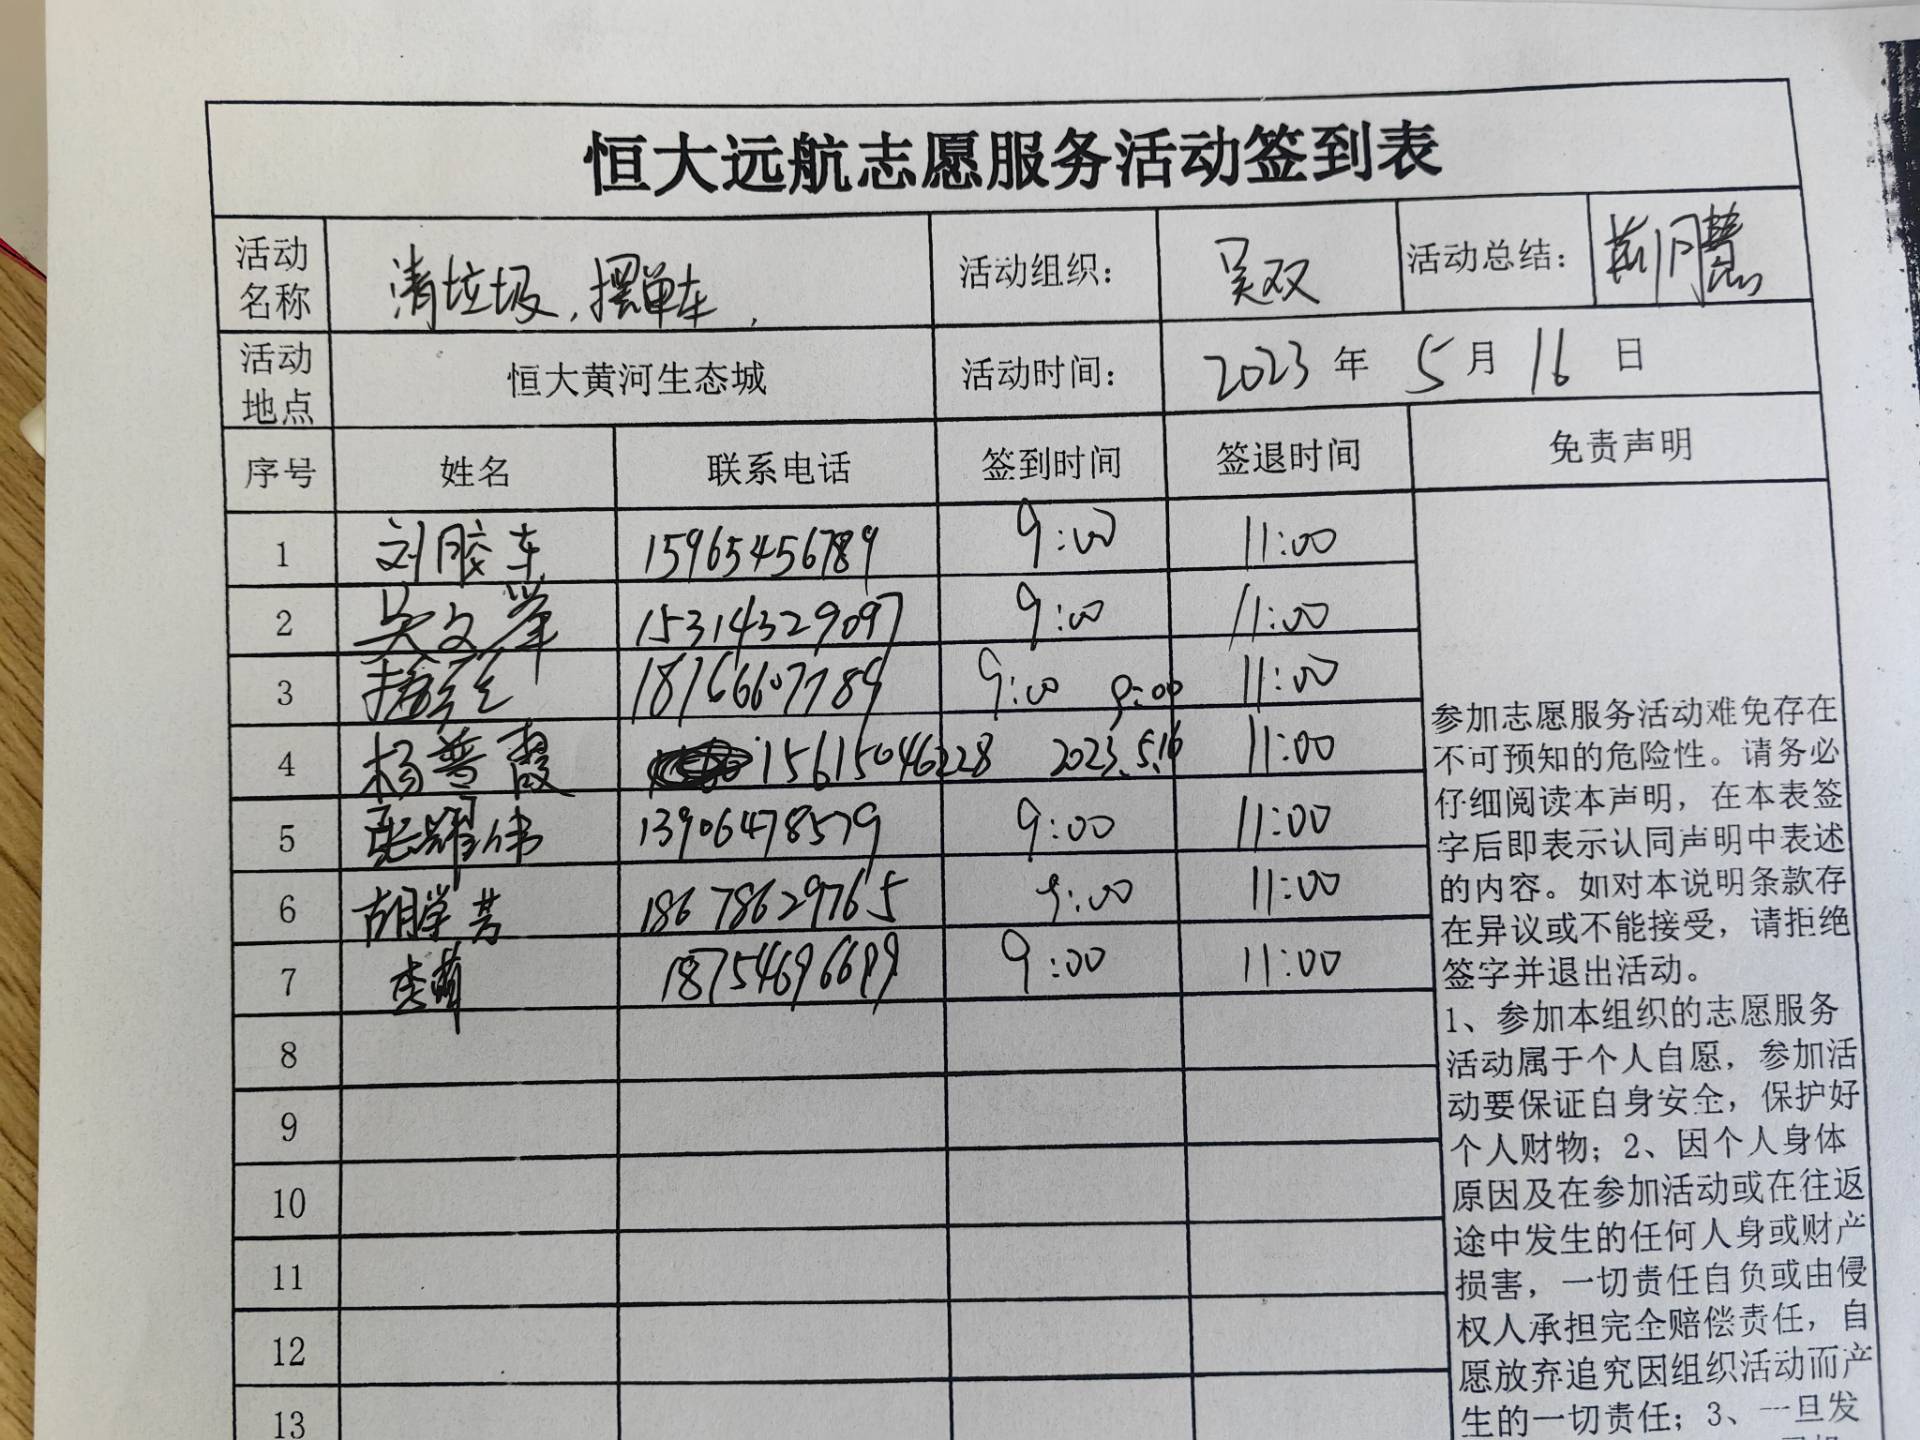 恒大远航志愿服务活动签到表
活动名称 清垃圾、摆单车、 活动组织: 吴双 活动总结: 
活动地点 恒大黄河生态城 活动时间: 2023 年 5 月 16 日
序号 姓名 联系电话 签到时间 签退时间 免责声明
1 刘胶东 15965456789 9:00 11:00
2 吴文举 15314329097 9:00 11:00
3 18766607789 9:00 9:00 11:00
4 杨普霞 15615046228 2023.5.16 11:00
5 张耀伟 13906478579 9:00 11:00
6 胡学芳 18678629765 9:00 11:00
7 李萌 18754696699 9:00 11:00
8
9
10
11
12
13
参加志愿服务活动难免存在
不可预知的危险性。请务必
仔细阅读本声明，在本表签
字后即表示认同声明中表述
的内容。如对本说明条款存
在异议或不能接受，请拒绝
签字并退出活动。
1、参加本组织的志愿服务
活动属于个人自愿，参加活
动要保证自身安全，保护好
个人财物；2、因个人身体
原因及在参加活动或在往返
途中发生的任何人身或财产
损害，一切责任自负或由侵
权人承担完全赔偿责任，自
愿放弃追究因组织活动而产
生的一切责任；3、一旦发